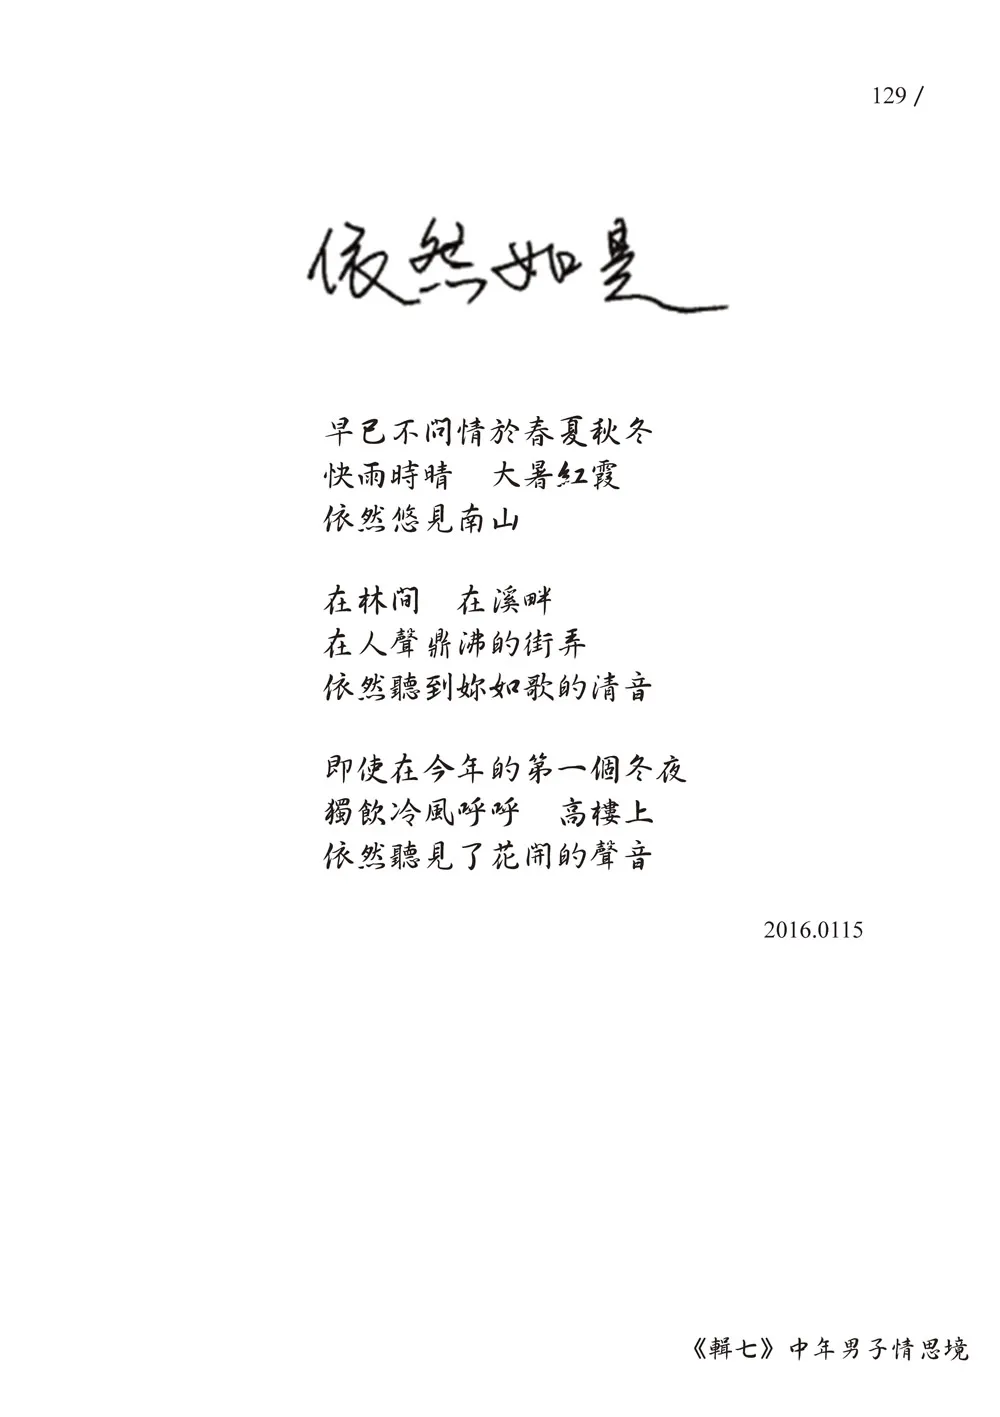 129 /
依然如是
早已不問情於春夏秋冬
快雨時晴　大暑紅霞
依然悠見南山
在林間　在溪畔
在人聲鼎沸的街弄
依然聽到妳如歌的清音
即使在今年的第一個冬夜
獨飲冷風呼呼　高樓上
依然聽見了花開的聲音
2016.0115
《輯七》中年男子情思境